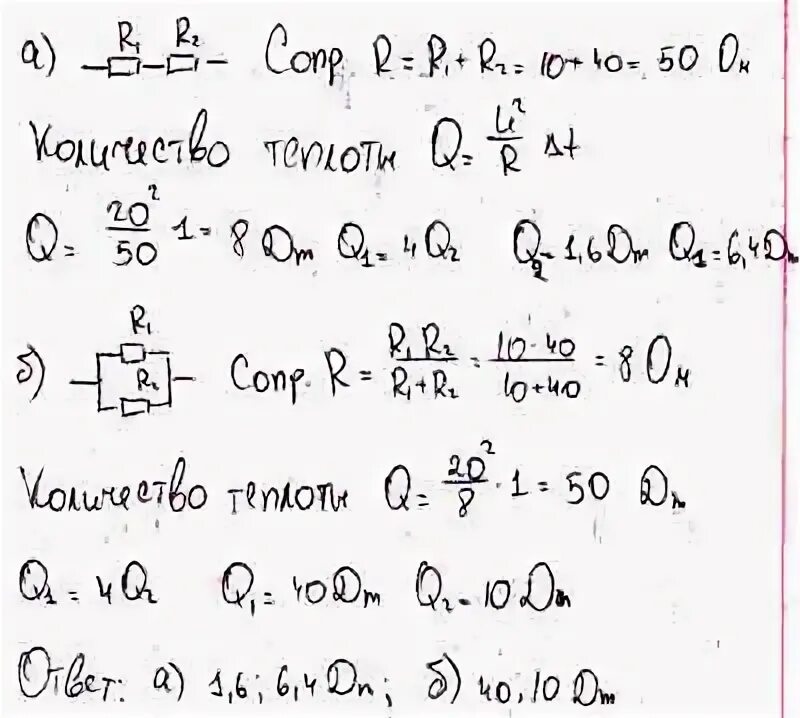 а) R₁ R₂ Сопр. R = R₁ + R₂ = 10 + 40 = 50 Ом
Количество теплоты Q = U²/R Δt
Q = 20²/50 · 1 = 8 Дж Q₁ = 4Q₂ Q₂ = 1,6 Дж Q₁ = 6,4 Дж
б) R₁ R₂ Сопр. R = R₁ R₂/R₁ + R₂ = 10 · 40/10 + 40 = 8 Ом
Количество теплоты Q = 20²/8 · 1 = 50 Дж
Q₁ = 4Q₂ Q₁ = 40 Дж Q₂ = 10 Дж
Ответ: а) 1,6; 6,4 Дж; б) 40, 10 Дж